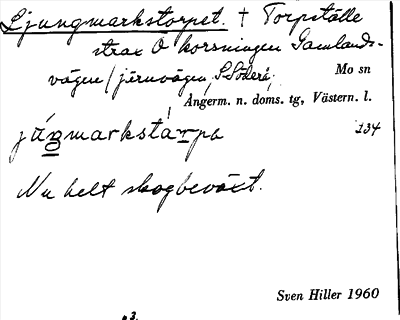 Ljungmarkstorpet. † Torpställe
strax Ö korsningen Gamlands-
vägen/järnvägen, S Söderå.
Mo sn
Ångerm. n. doms. tg, Västern. l.
134
Nu helt skogbeväxt.
Sven Hiller 1960